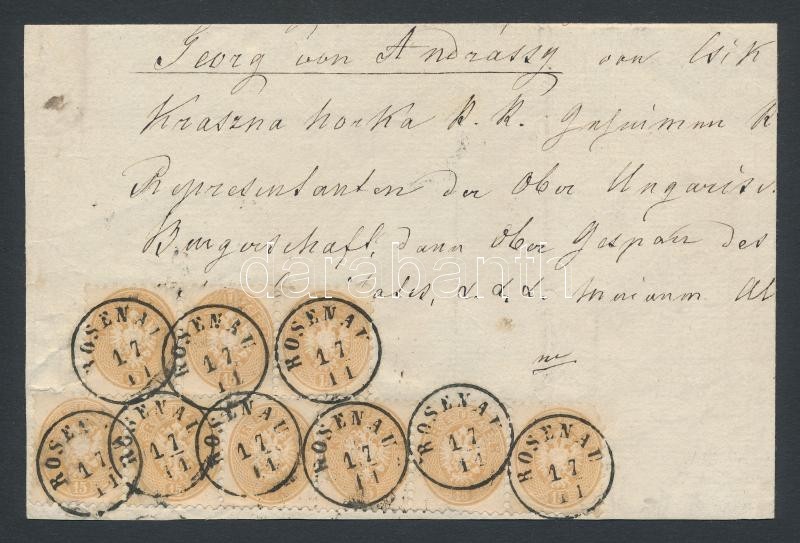 Georg von Andrássy von Csik
Kraszna horka K. K. Geheimen K
Representanten der Ober Ungarisc
Burgerschaft, dann Ober Gespan des
darabanth
ROSENAU 17/11
ROSENAU 17/11
ROSENAU 17/11
ROSENAU 17/11
ROSENAU 17/11
ROSENAU 17/11
ROSENAU 17/11
ROSENAU 17/11
ROSENAU 17/11